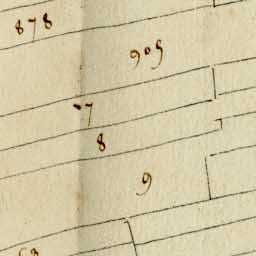 878
905
7
8
9